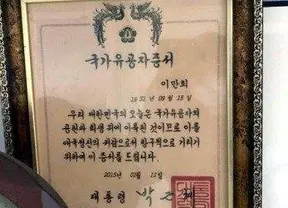 국가유공자증서
이만희
1931년 09월 15일
우리 대한민국의 오늘은 국가유공자의
공헌과 희생 위에 이룩된 것이므로 이를
애국정신의 귀감으로서 항구적으로 기리기
위하여 이 증서를 드립니다.
2015년 월 12일
대통령 박근혜